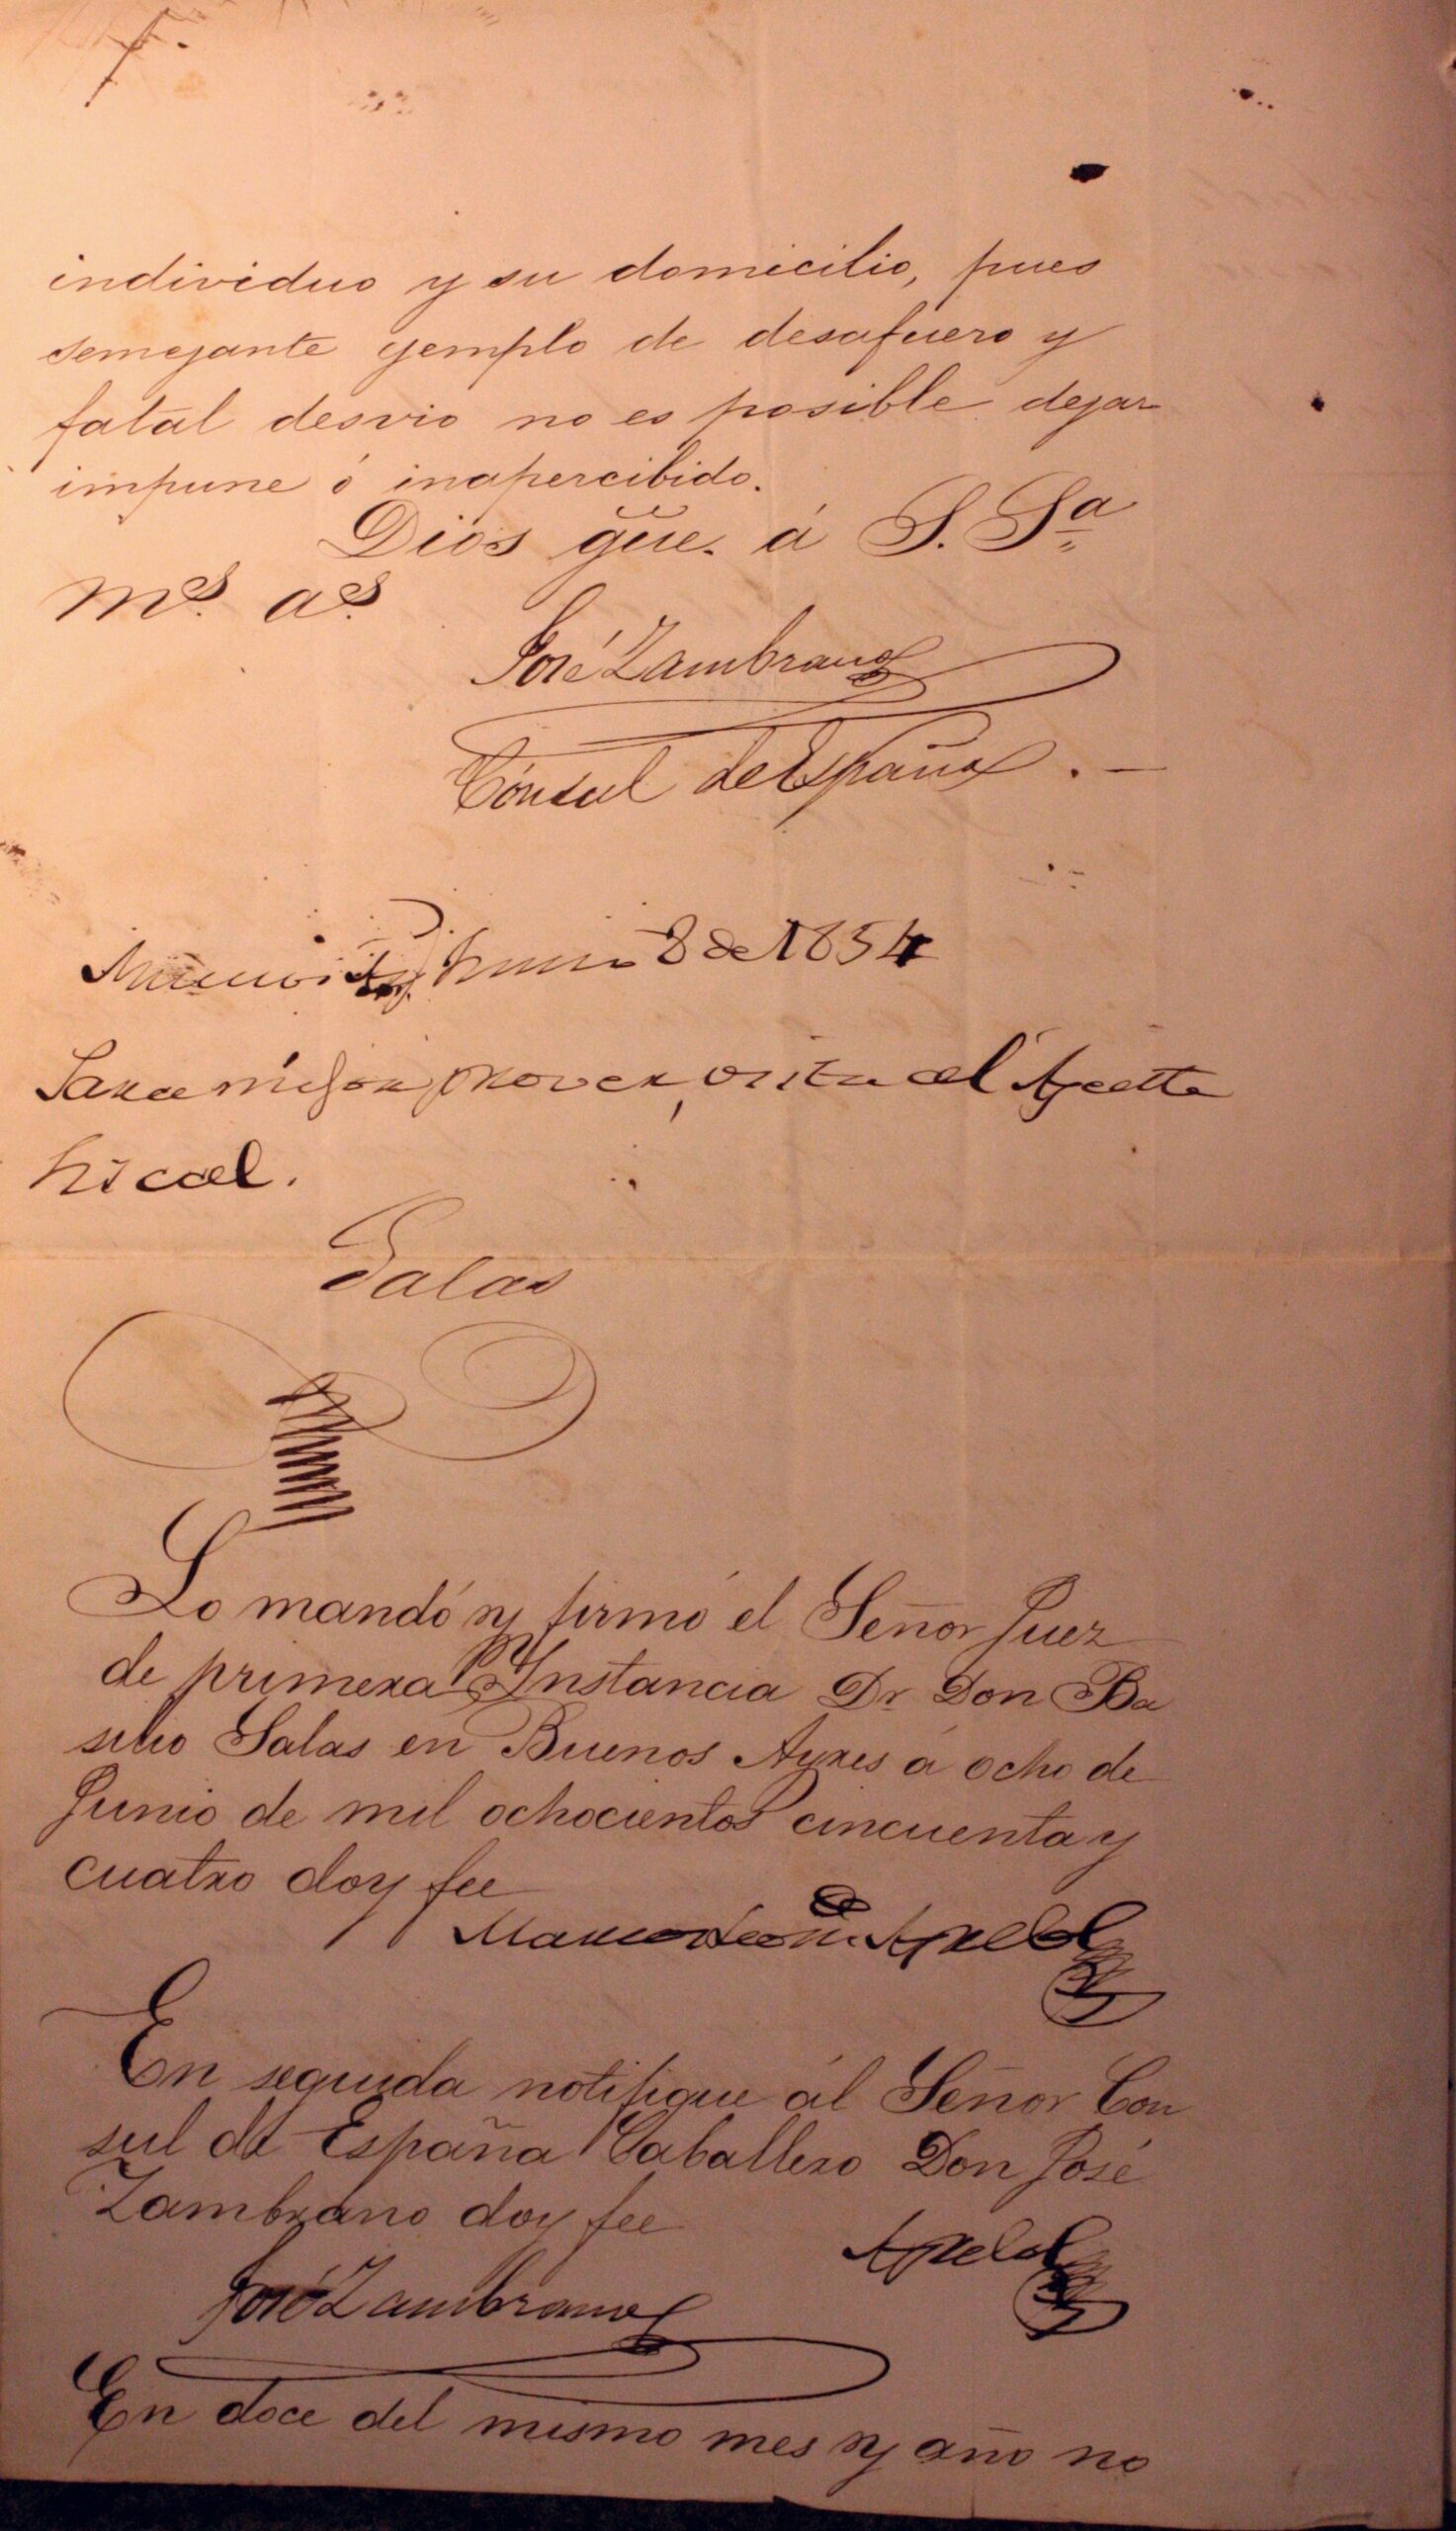 individuo y su domicilio, pues
semejante ejemplo de desafuero y
fatal desvio no es posible dejar
impune ó inapercibido.
Dios gũe. á S. Sª
mˢ. aˢ.
José Zambrano
Cónsul de España . —
Junio 8 de 1854
Para mejor proveer, vista al Agente
Fiscal.
Salas
Lo mandó y firmó el Señor Juez
de primera Instancia Dr Don Ba
silio Salas en Buenos Ayres á ocho de
Junio de mil ochocientos cincuenta y
cuatro doy fee
En seguida notifique ál Señor Con
sul de España Caballero Don José
Zambrano doy fee
José Zambrano
En doce del mismo mes y año no